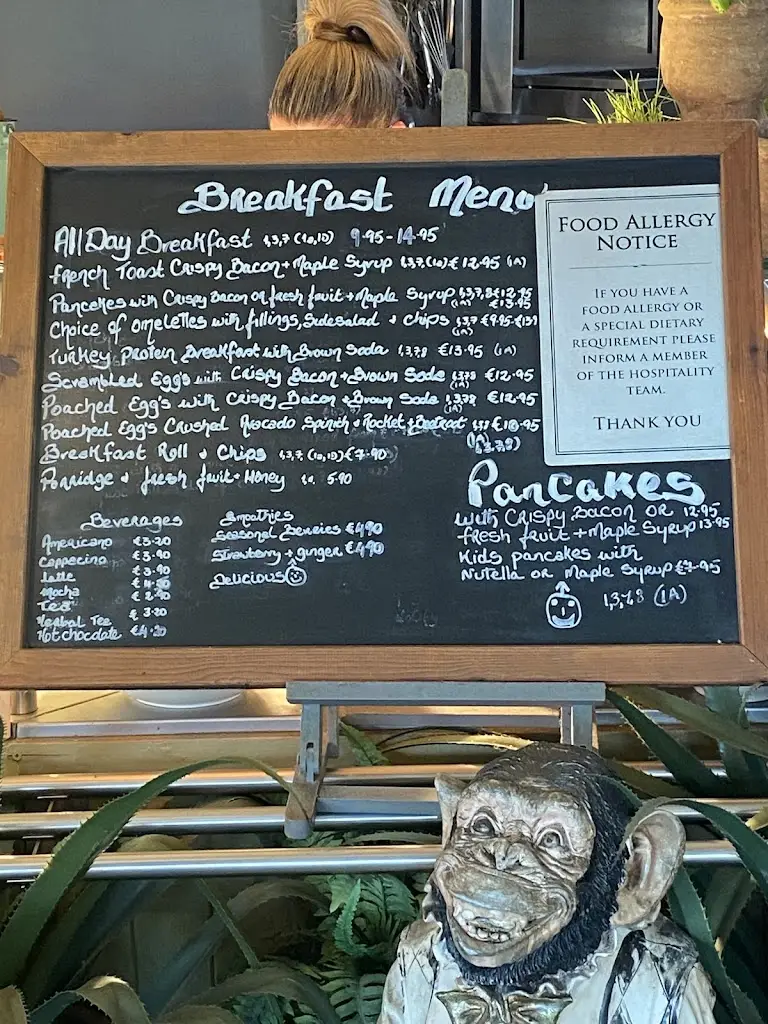 Breakfast Menu
All Day Breakfast 1,3,7 (1a,1D) 9.95-14.95
French Toast Crispy Bacon + Maple Syrup 1,3,7,(1a) € 12.95 (1A)
Pancakes with Crispy Bacon or fresh fruit + Maple Syrup 1,3,7,8 €12.95
(1A) €13.95
Choice of omelettes with fillings, Side salad & chips 1,3,7 €9.95-€13
(1A)
Turkey Protein Breakfast with Brown Soda 1,3,7,8 €13.95 (1A)
Scrambled Egg's with Crispy Bacon + Brown Soda 1,3,7,8 €12.95
(1A)
Poached Egg's with Crispy Bacon + Brown Soda 1,3,7,8 €12.95
(1A)
Poached Egg's Crushed Avocado Spinich & Rocket + Beetroot
(1A)
Breakfast Roll & Chips 1,3,7, (1a,1D) €7.90
Porridge & fresh fruit + Honey 5.90
FOOD ALLERGY
NOTICE
IF YOU HAVE A
FOOD ALLERGY OR
A SPECIAL DIETARY
REQUIREMENT PLEASE
INFORM A MEMBER
OF THE HOSPITALITY
TEAM.
THANK YOU
Beverages
Americano €3.20
Cappecino €3.90
latte €3.90
Mocha
Tea
Herbal Tee € 3.20
Hot chocdate €4.20
Smoothies
Seasonal Berries €4.90
Strawberry + ginger €4.90
Delicious
Pancakes
with Crispy Bacon OR 12.95
fresh fruit + Maple Syrup 13.95
Kids pancakes with
Nutella or Maple Syrup €7.95
1,3,7,8 (1A)